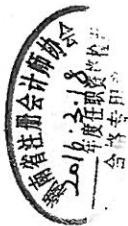 南省注册会计师协会
2016.3.18
年度任职资格检查
合格专用